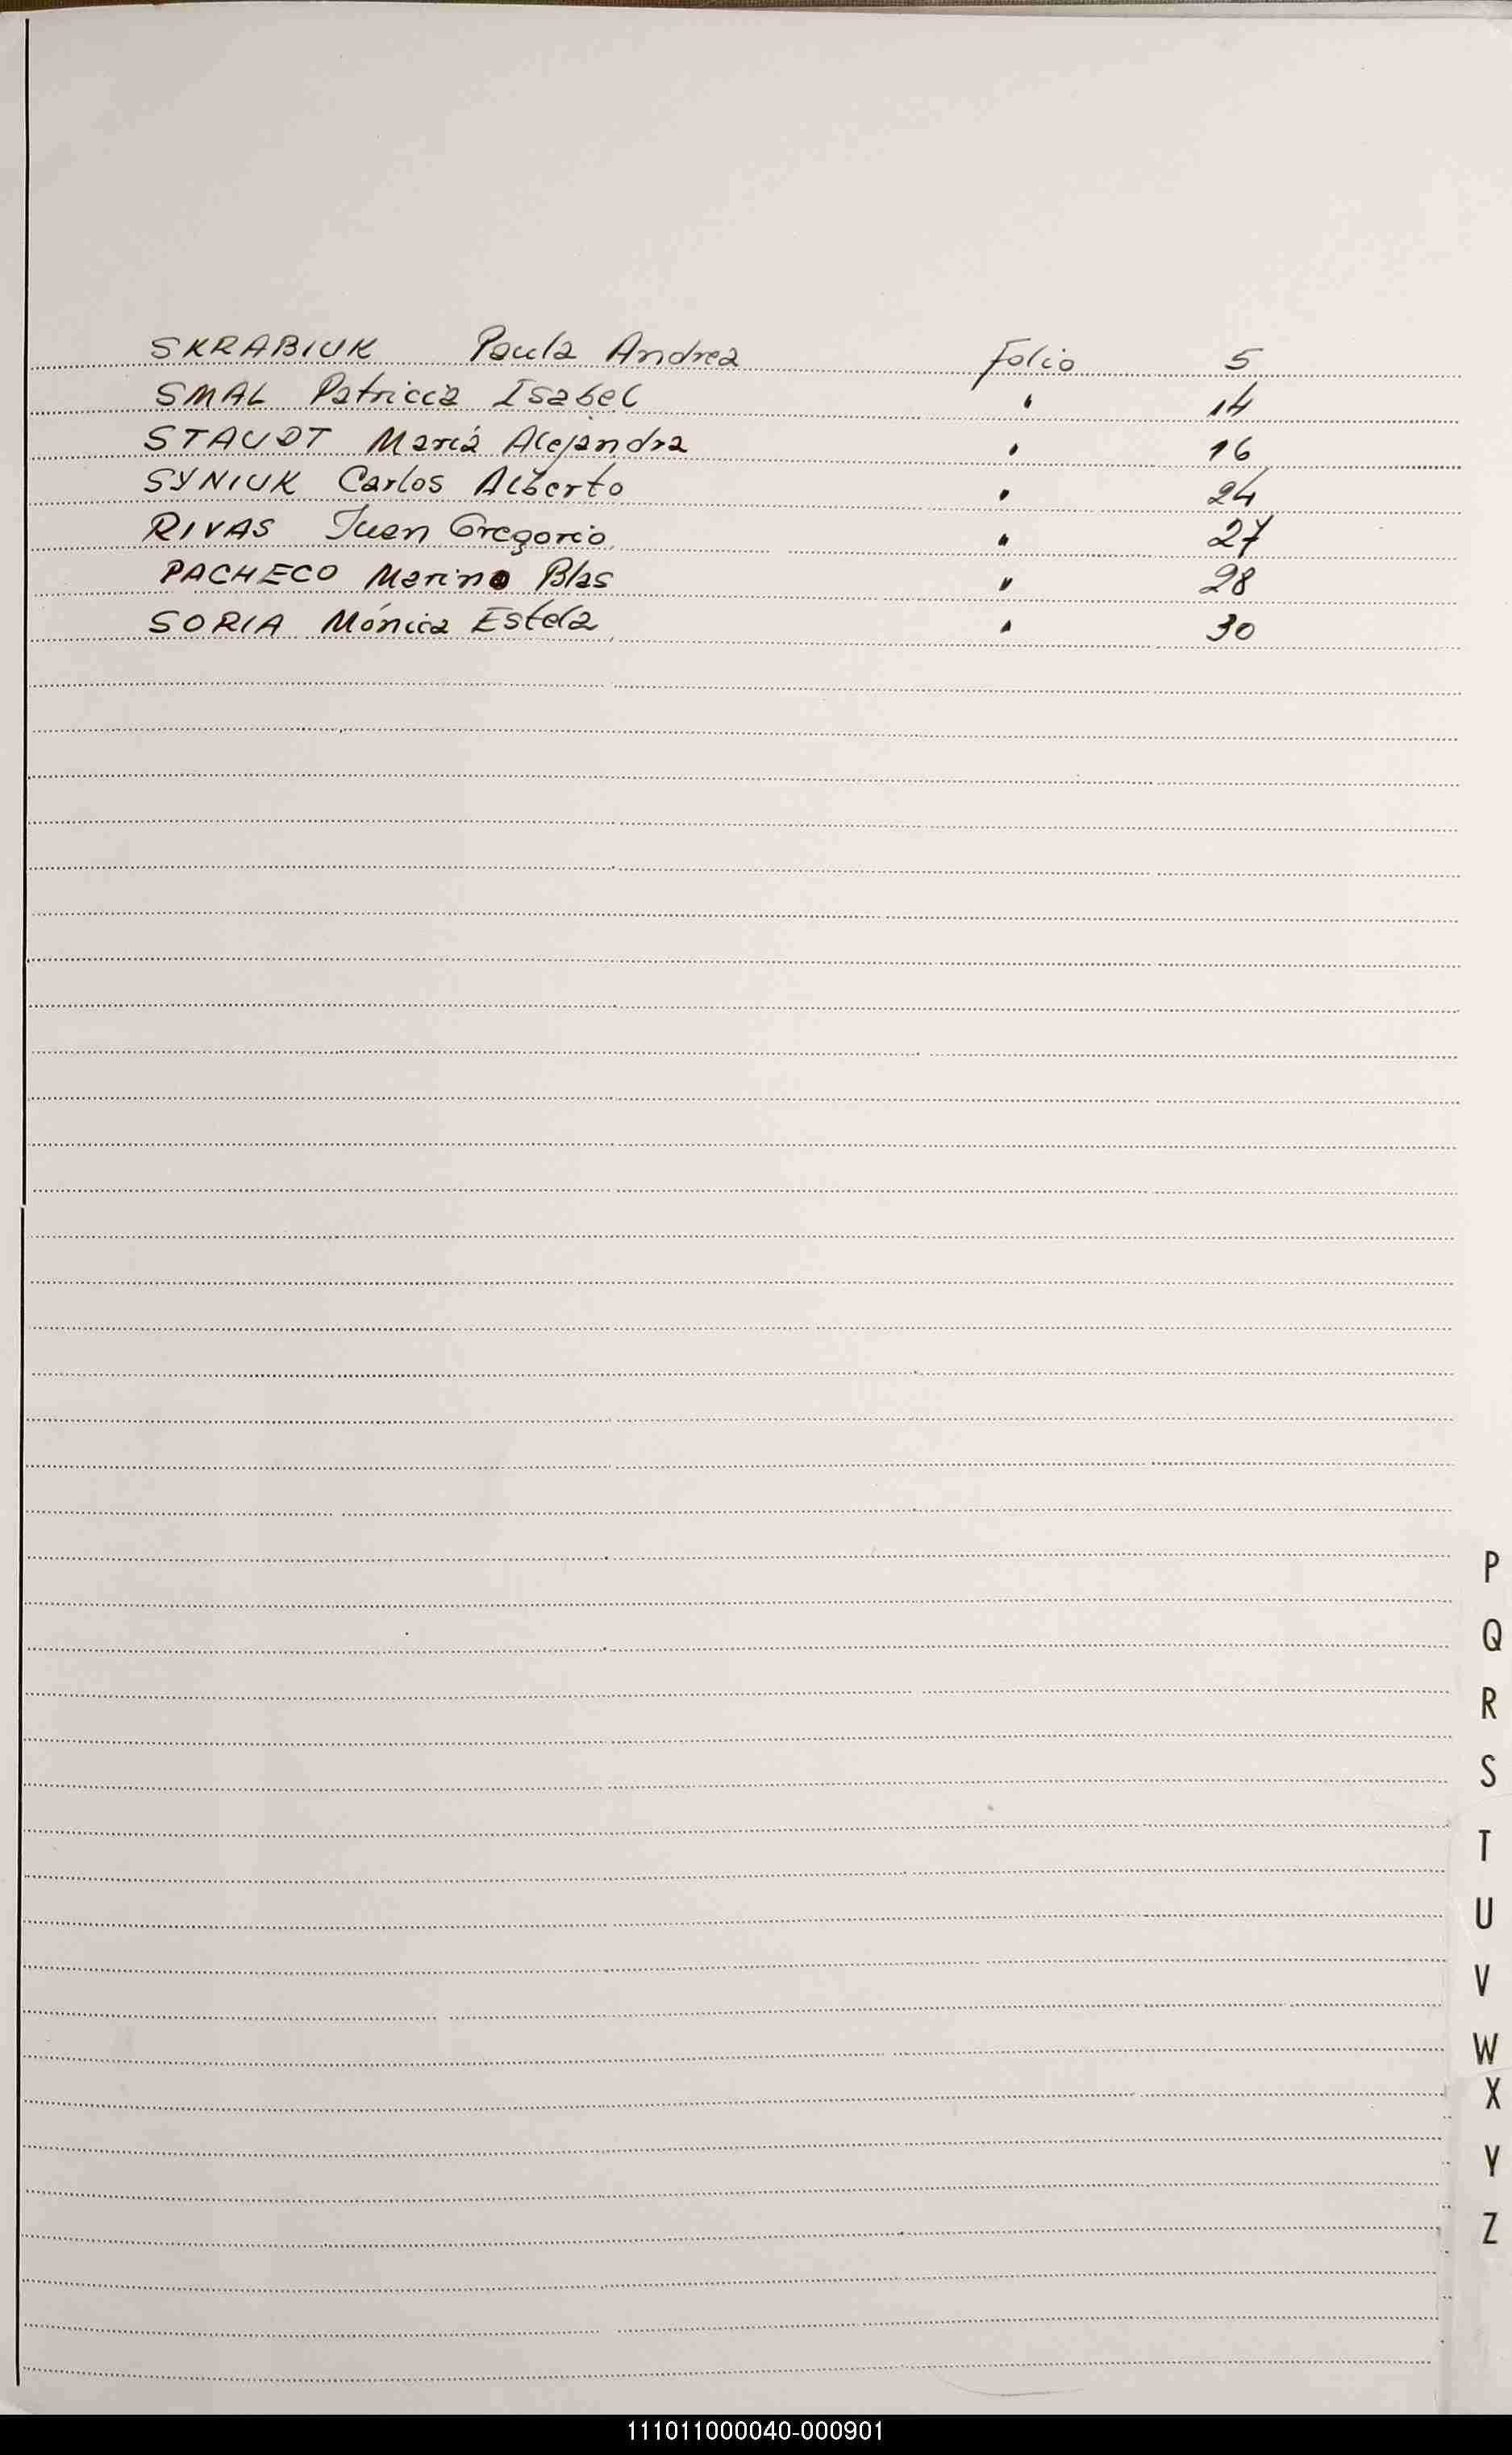 SKRABIUK Paula Andrea Folio 5
SMAL Patricia Isabel " 14
STAUDT María Alejandra " 16
SYNIUK Carlos Alberto " 24
RIVAS Juan Gregorio " 27
PACHECO Marino Blas " 28
SORIA Mónica Estela " 30
P
Q
R
S
T
U
V
W
X
Y
Z
111011000040-000901